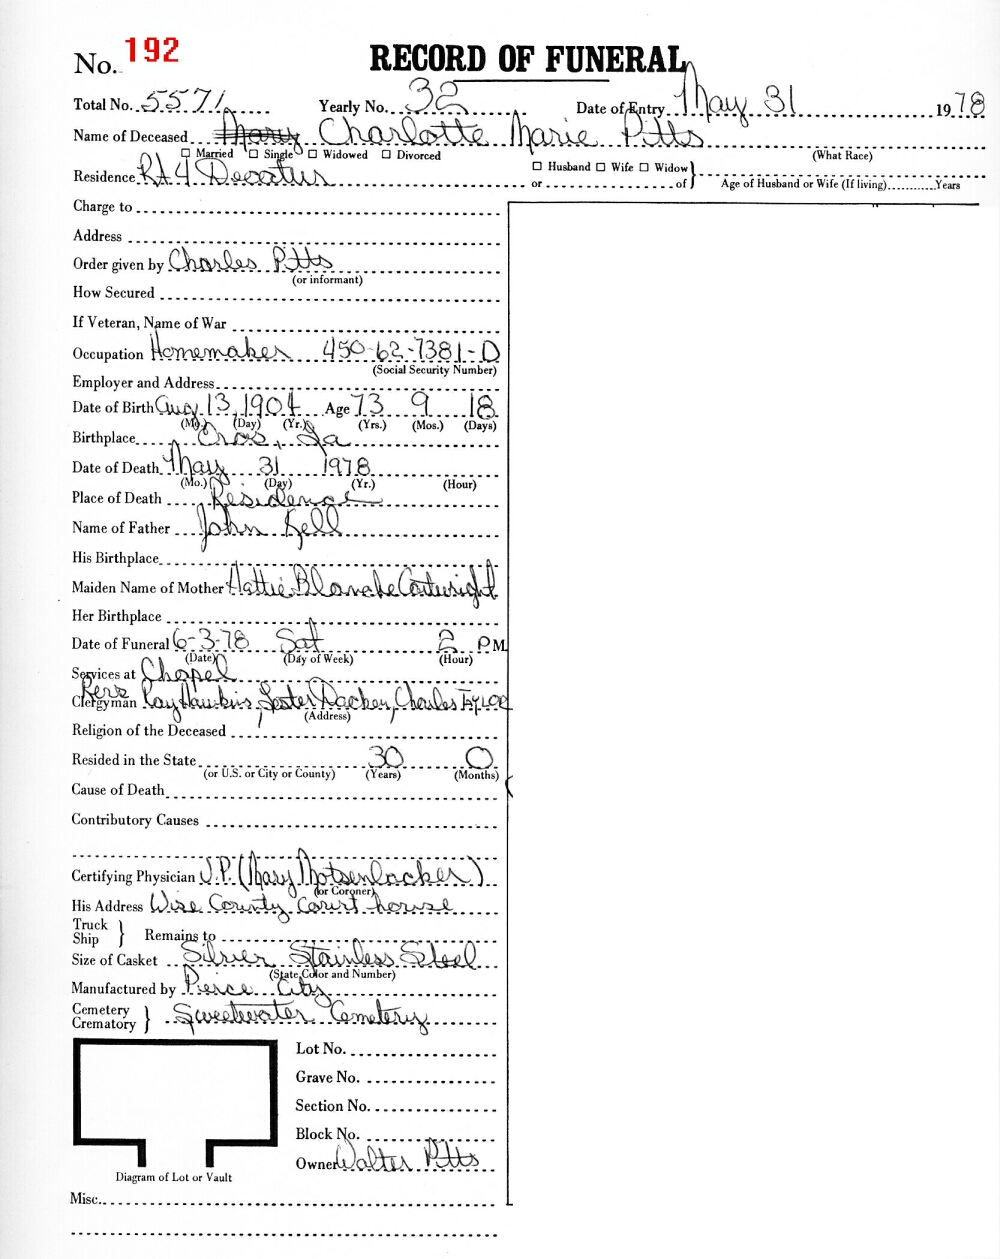 No. 192
RECORD OF FUNERAL
Total No. 5571 Yearly No. 32 Date of Entry May 31 1978
Name of Deceased Mary Charlotte Marie Pitts
☐ Married ☐ Single ☐ Widowed ☐ Divorced (What Race)
Residence Rt 4 Decatur ☐ Husband ☐ Wife ☐ Widow
or of } Age of Husband or Wife (If living) Years
Charge to
Address
Order given by Charles Pitts
(or informant)
How Secured
If Veteran, Name of War
Occupation Homemaker 450-62-7381-D
(Social Security Number)
Employer and Address
Date of Birth Aug 13, 1904 Age 73 9 18
(Mo.) (Day) (Yr.) (Yrs.) (Mos.) (Days)
Birthplace , Ga
Date of Death May 31 1978
(Mo.) (Day) (Yr.) (Hour)
Place of Death Residence
Name of Father John Kell
His Birthplace
Maiden Name of Mother Hattie Blanche Cartwright
Her Birthplace
Date of Funeral 6-3-78 Sat 2 PM
(Date) (Day of Week) (Hour)
Services at Chapel
Clergyman Ray Hawkins, Lester , Charles Tylor
(Address)
Religion of the Deceased
Resided in the State 30 0
(or U.S. or City or County) (Years) (Months)
Cause of Death
Contributory Causes
Certifying Physician J.P. (Mary Motsenbocker)
(or Coroner)
His Address Wise County Court house
Truck
Ship } Remains to
Size of Casket Silver Stainless Steel
(State, Color and Number)
Manufactured by Pierce City
Cemetery
Crematory } Sweetwater Cemetery
Lot No.
Grave No.
Section No.
Block No.
Owner Walter Pitts
Diagram of Lot or Vault
Misc.